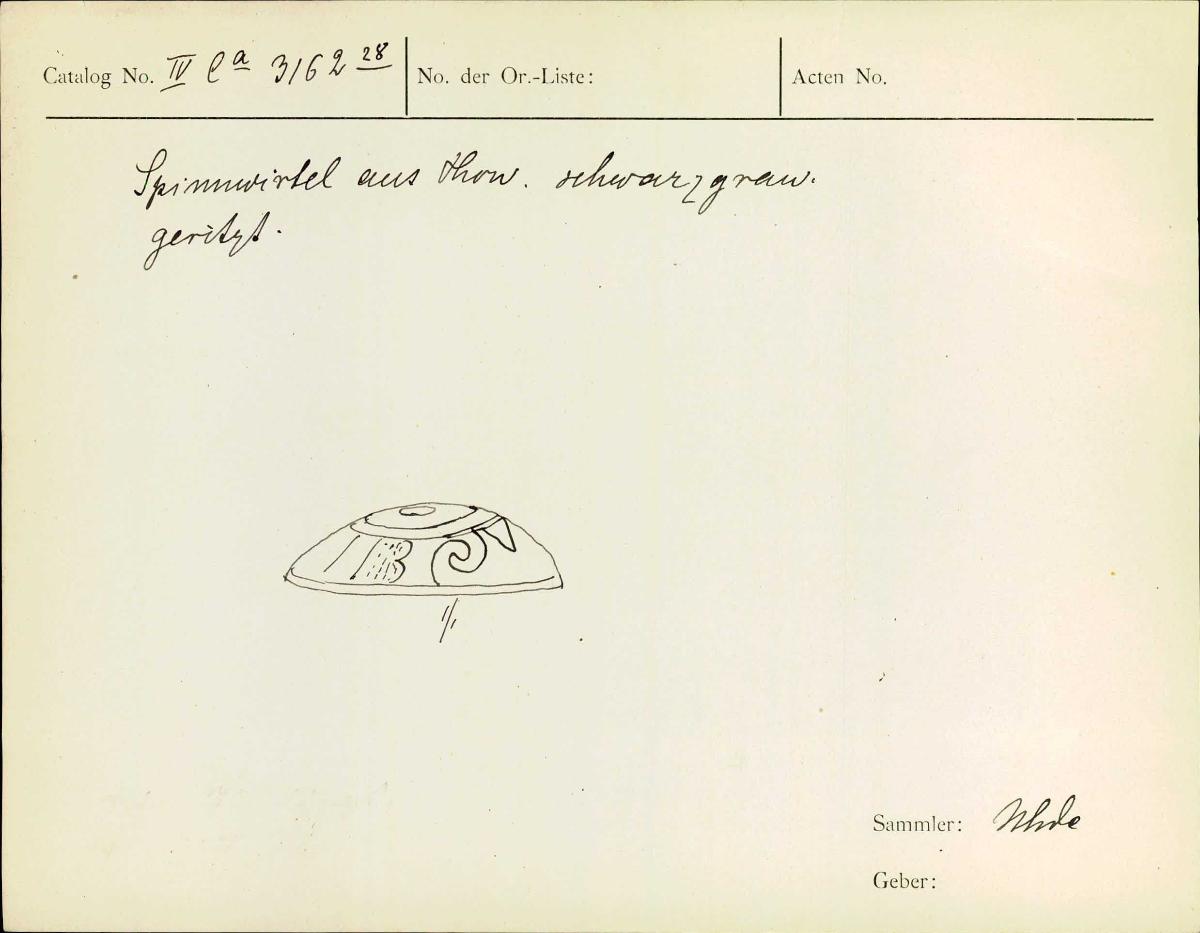 Catalog No. IV Ca 3162 28
No. der Or.-Liste:
Acten No.
Spinnwirtel aus Thon. schwarzgrau.
geritzt.
1/1
Sammler: Uhde
Geber: